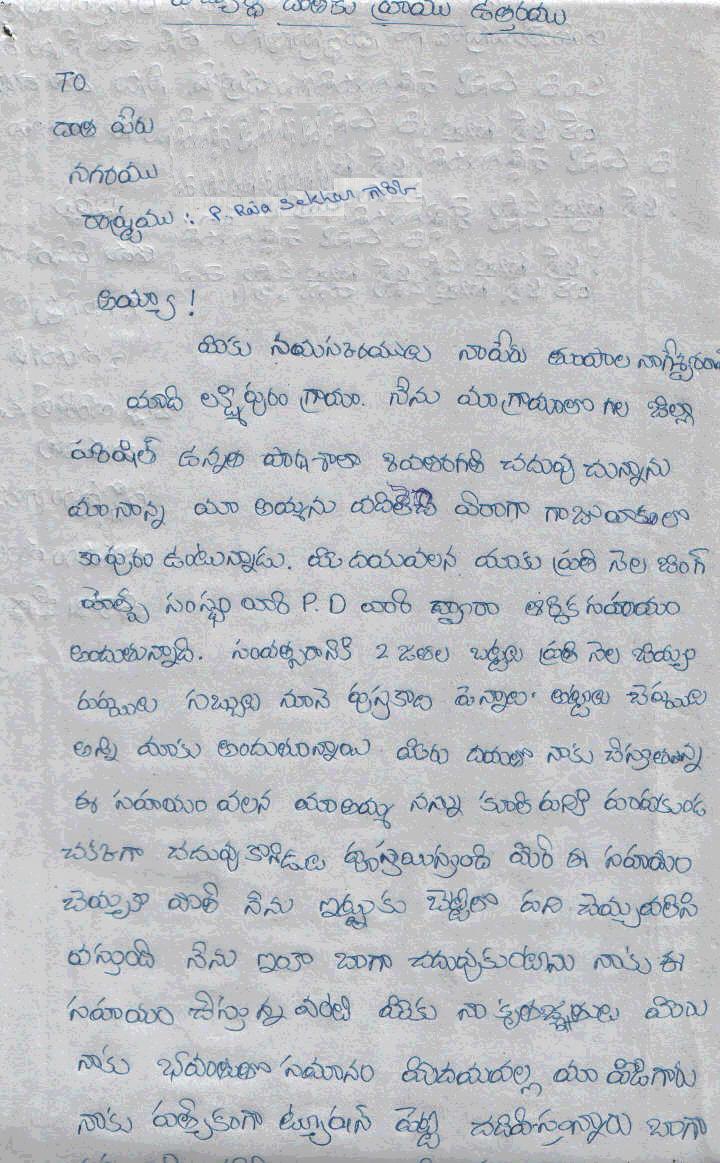 దాతకు వ్రాయు ఉత్తరము
TO
దాత పేరు
నగరము
రాష్ట్రము : P. Raja Sekhar గారికి
అయ్యా !
మీకు నమస్కారములు నాపేరు తూపాల నాగేశ్వరరావు
మాది లక్ష్మిపురం గ్రామం. నేను మా గ్రామంలో గల జిల్లా
పరిషత్ ఉన్నత పాఠశాలా తరగతి చదువు చున్నాను
మా నాన్న మా అమ్మను వదిలేసి వేరాగా గాజువాకలో
కాపురం ఉంటున్నాడు. మీ దయవలన మాకు ప్రతి నెల
సంస్థ వారి P.D వారి ద్వారా ఆర్థిక సహాయం
అందుతున్నాది. సంవత్సరానికి 2 జతల బట్టలు ప్రతి నెల బియ్యం
పప్పులు సబ్బులు నూనె పుస్తకాలు పెన్నులు అట్టలు చెప్పులు
అన్ని మాకు అందుతున్నాయి మీరు దయతో నాకు చేస్తున్న
ఈ సహాయం వలన మా అమ్మ నన్ను కూలి పనికి పంపకుండ
చక్కగా చదువుకొనేడు మీరీ ఈ సహాయం
చెయ్యక పోతే నేను ఇట్టుకు పని చెయ్యవలసి
వస్తుంది నేను ఇంకా బాగా చదువుకుంటాను నాకు ఈ
సహాయం చేస్తున్న వంటి మీకు నా కృతజ్ఞతలు మీరు
నాకు భగవంతుతో సమానం మీదయవల్ల మా పిడిగారు
నాకు ప్రత్యేకంగా ట్యూషన్ పెట్టి చదివిస్తున్నారు బాగా